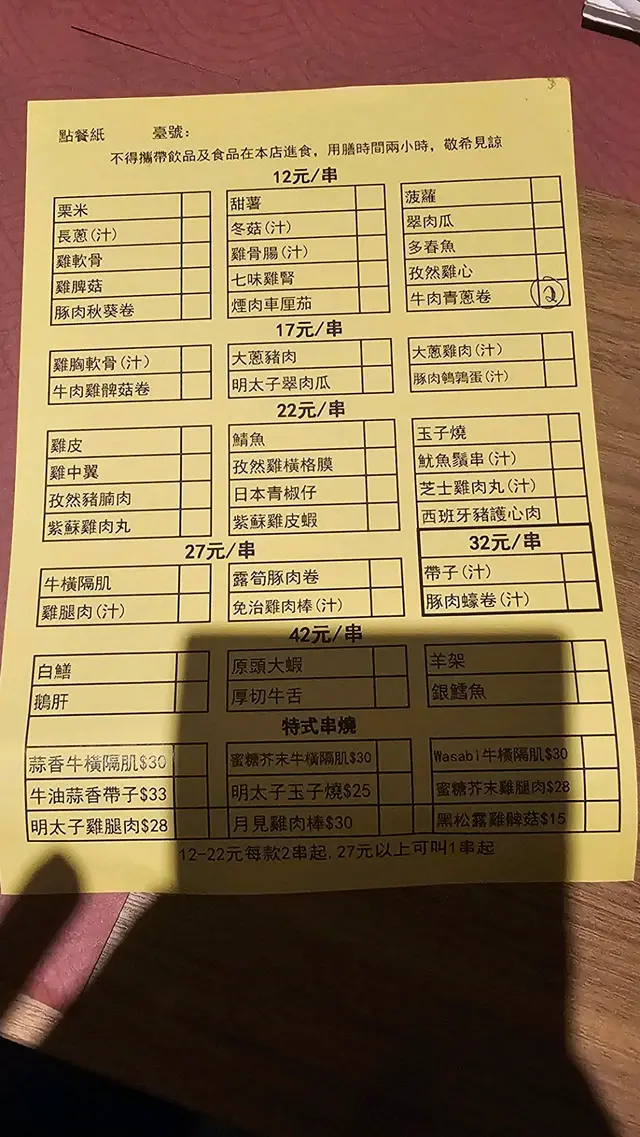 點餐紙 臺號:
不得攜帶飲品及食品在本店進食, 用膳時間兩小時, 敬希見諒
12元/串
栗米 甜薯 菠蘿
長蔥(汁) 冬菇(汁) 翠肉瓜
雞軟骨 雞骨腸(汁) 多春魚
雞脾菇 七味雞腎 孜然雞心
豚肉秋葵卷 煙肉車厘茄 牛肉青蔥卷 2
17元/串
雞胸軟骨(汁) 大蔥豬肉 大蔥雞肉(汁)
牛肉雞髀菇卷 明太子翠肉瓜 豚肉鵪鶉蛋(汁)
22元/串
雞皮 鯖魚 玉子燒
雞中翼 孜然雞橫格膜 魷魚鬚串(汁)
孜然豬腩肉 日本青椒仔 芝士雞肉丸(汁)
紫蘇雞肉丸 紫蘇雞皮蝦 西班牙豬護心肉
27元/串 32元/串
牛橫隔肌 露筍豚肉卷 帶子(汁)
雞腿肉(汁) 免治雞肉棒(汁) 豚肉蠔卷(汁)
42元/串
白鱔 原頭大蝦 羊架
鵝肝 厚切牛舌 銀鱈魚
特式串燒
蒜香牛橫隔肌$30 蜜糖芥末牛橫隔肌$30 Wasabi牛橫隔肌$30
牛油蒜香帶子$33 明太子玉子燒$25 蜜糖芥末雞腿肉$28
明太子雞腿肉$28 月見雞肉棒$30 黑松露雞髀菇$15
12-22元每款2串起, 27元以上可叫1串起